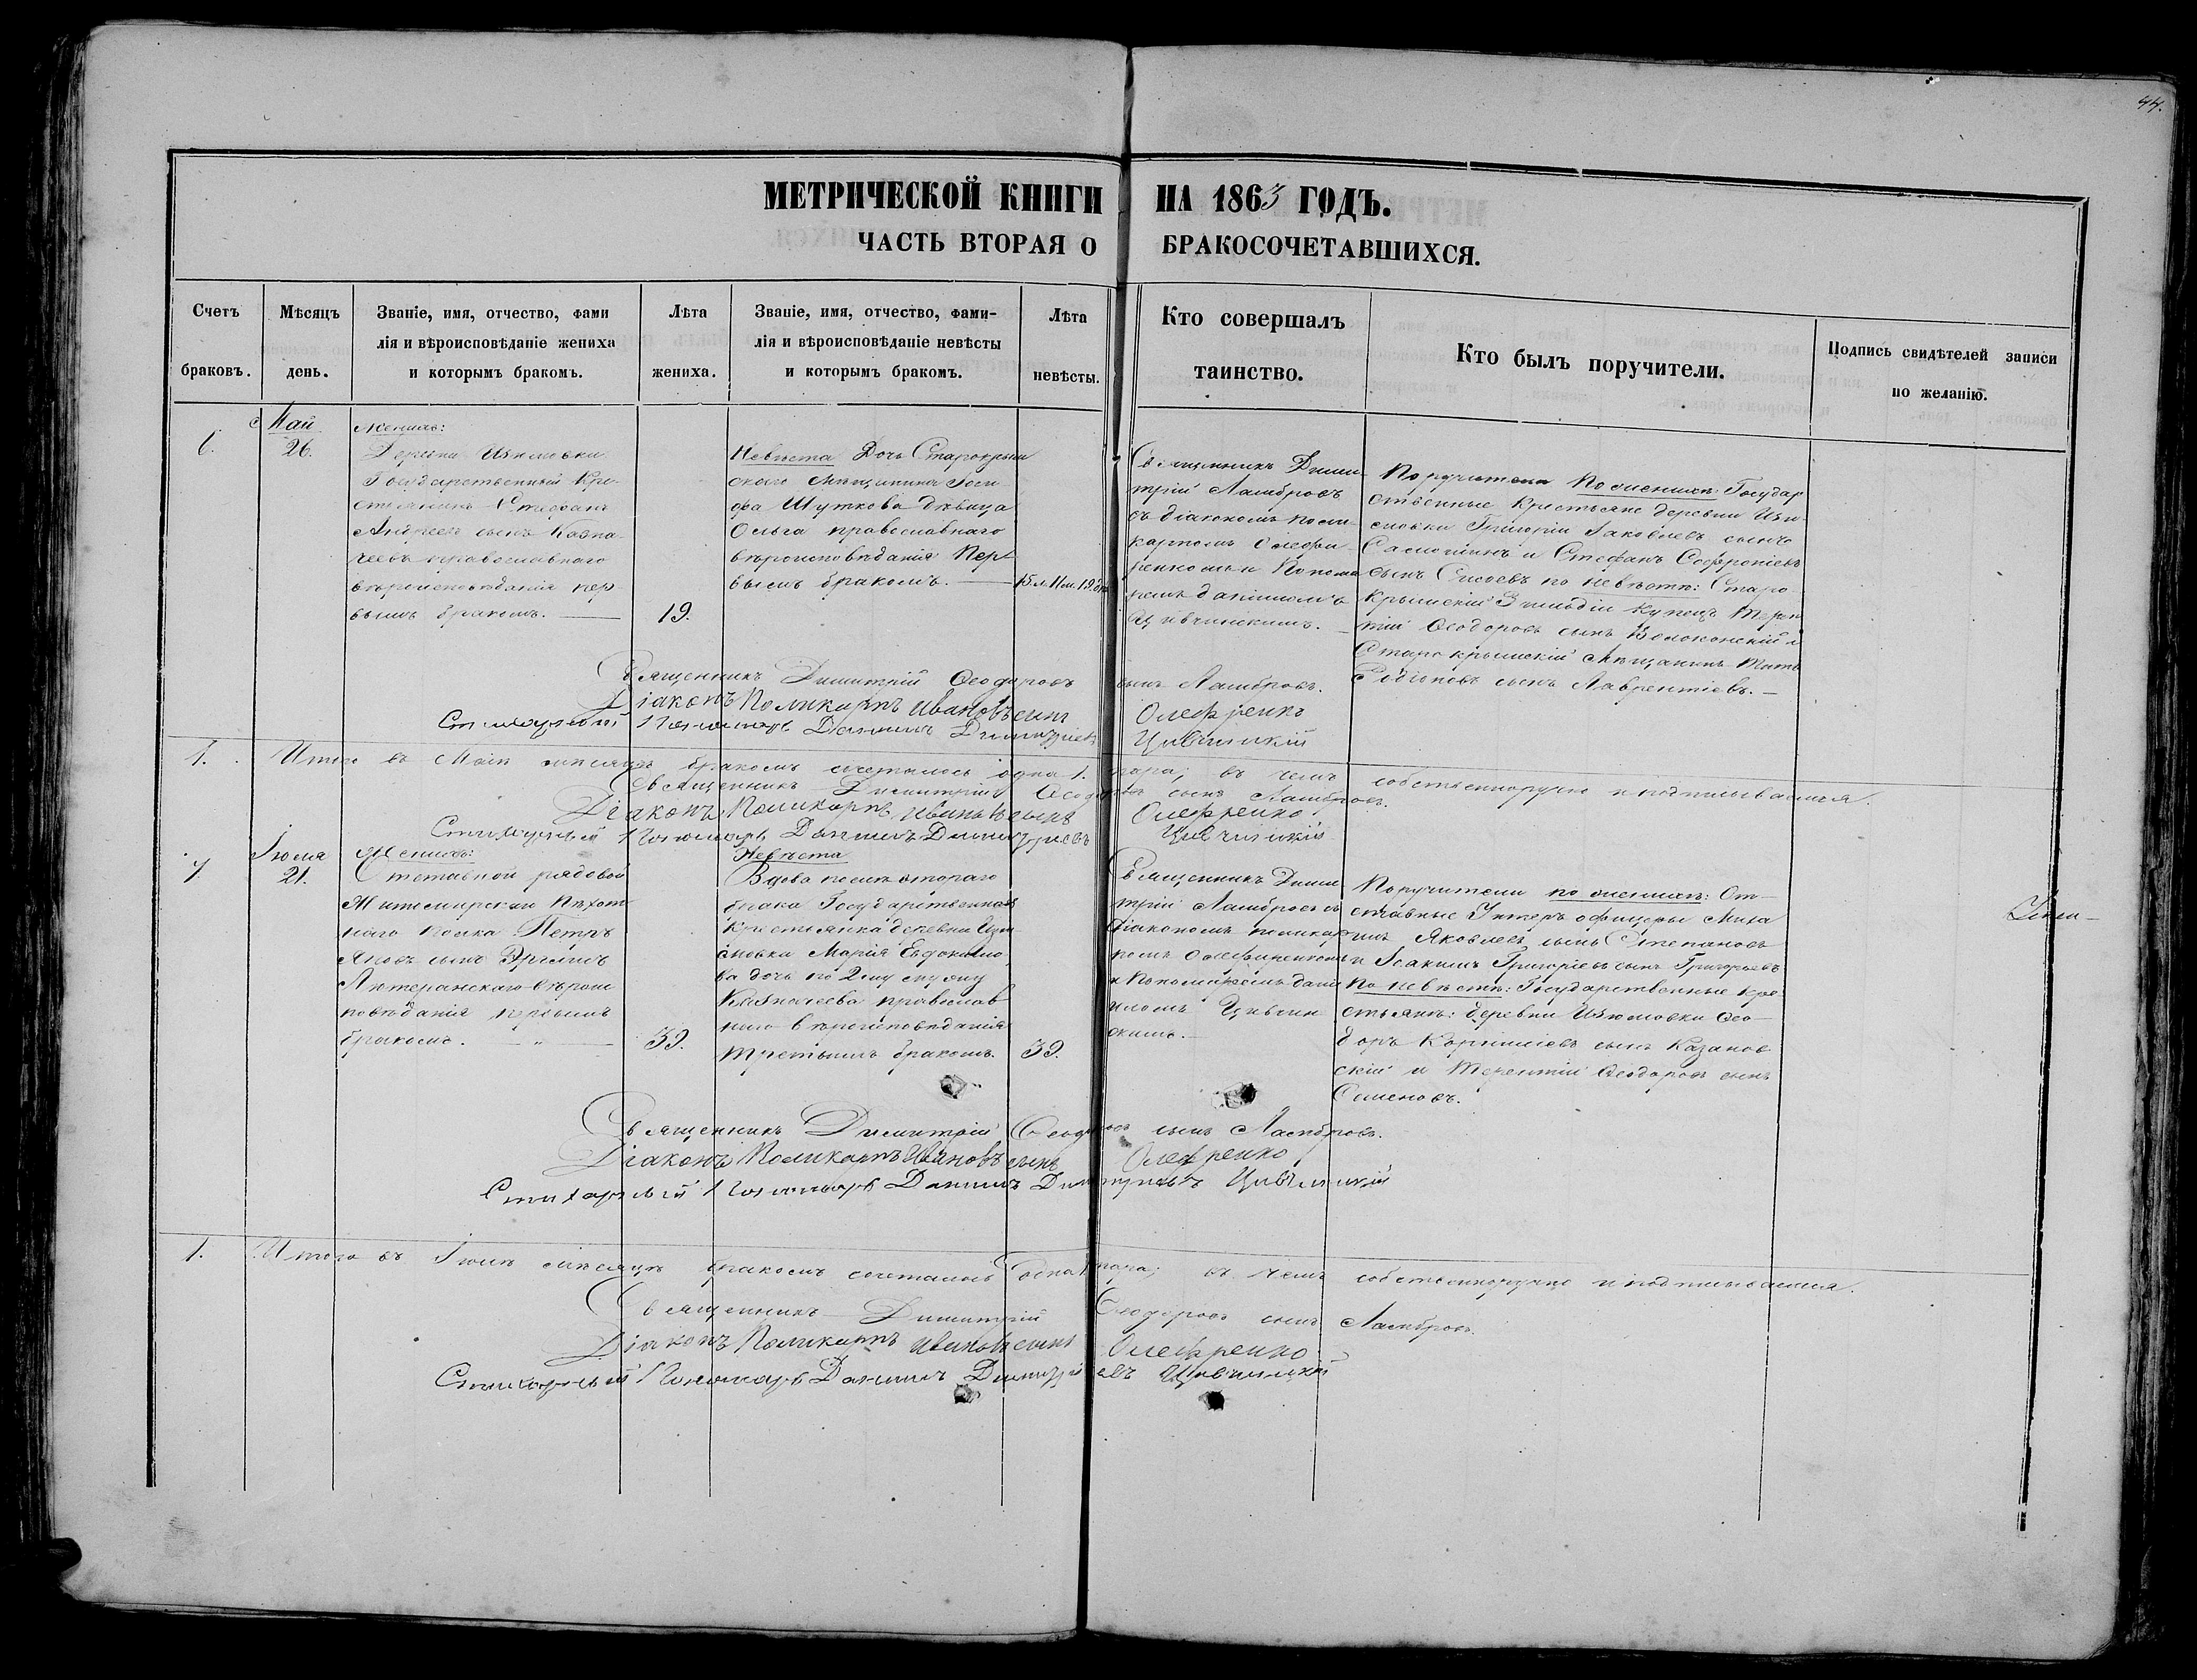 44.
МЕТРИЧЕСКОЙ КНИГИ НА 1863 ГОДЪ.
ЧАСТЬ ВТОРАЯ О БРАКОСОЧЕТАВШИХСЯ.
Счетъ браковъ.
Мѣсяцъ день.
Званіе, имя, отчество, фами
лія и вѣроисповѣданіе жениха
и которымъ бракомъ.
Лѣта жениха.
Званіе, имя, отчество, фами-
лія и вѣроисповѣданіе невѣсты
и которымъ бракомъ.
Лѣта невѣсты.
Кто совершалъ
таинство.
Кто былъ поручители.
Подпись свидѣтелей записи
по желанію.
6.
Май
26.
Женихъ:
Деревни Изюмовки
Государственный Кре-
стьянинъ Стефанъ
Андреевъ сынъ Казна-
чеевъ православнаго
вѣроисповѣданія пер-
вымъ бракомъ.
19.
Невѣста Дочь Старокрым
скаго Мѣщанина Іоси-
фа Шуткова дѣвица
Ольга православнаго
вѣроисповѣданія Пер-
вымъ бракомъ.
15 л. 11 м. 19
Священникъ Дими-
трій Ламбровъ
съ діакономъ Поли-
карпомъ
и Понома
ремъ Даніиломъ
Цивчинскимъ.
Поручители По женихѣ: Государ
ственные Крестьяне деревни Изю-
мовки Григорій Іаковлевъ сынъ
и Стефанъ Софроніевъ
сынъ Сисоевъ по невѣстѣ: Старо-
Крымскій 3 гильдіи купецъ Терен
тій Ѳеодоровъ сынъ Волоконскій и
Старокрымскій Мѣщанинъ Титъ
Родіоновъ сынъ Лаврентіевъ.
Священникъ Димитрій Ѳеодоровъ сынъ Ламбровъ.
Діаконъ Поликарпъ Ивановъ сынъ
Стихарный Пономарь Даніилъ Димитріевъ
1. Итого въ Маѣ мѣсяцѣ бракомъ сочеталось одна 1. пара; въ чемъ собственноручно и подписываемся.
Священникъ Димитрій Ѳеодоровъ сынъ Ламбровъ.
Діаконъ Поликарпъ Ивановъ сынъ
Стихарный Пономарь Даніилъ Димитріевъ
7
Іюня
21.
Женихъ:
Отставной рядовой
Житомирскаго Пѣхот
наго полка Петръ
Яновъ сынъ
Лютеранскаго вѣроис
повѣданія первымъ
бракомъ.
39.
Невѣста
Вдова послѣ втораго
брака Государственная
Крестьянка деревни Изю
мовки Марія Евдокимо
ва дочь по 2му мужу
Казначеева православ
наго вѣроисповѣданія
третьимъ бракомъ.
39.
Священникъ Дими
трій Ламбровъ съ
діакономъ Поликар
помъ
и Пономаремъ Дані
иломъ Цивчин
скимъ.
Поручители по женихѣ: От-
ставные Унтеръ офицеры Миха
илъ Яковлевъ сынъ Степановъ
и Іоакимъ Григоріевъ сынъ Григорьевъ
По невѣстѣ: Государственные Кре-
стьяне: деревни Изюмовки Ѳео-
доръ Корниліевъ сынъ Казанов
скій и Терентій Ѳеодоровъ сынъ
Семеновъ.
Священникъ Димитрій Ѳеодоровъ сынъ Ламбровъ.
Діаконъ Поликарпъ Ивановъ сынъ
Стихарный Пономарь Даніилъ Димитріевъ
1. Итого въ Іюнѣ мѣсяцѣ бракомъ сочеталось одна 1 пара; въ чемъ собственноручно и подписываемся.
Священникъ Димитрій Ѳеодоровъ сынъ Ламбровъ.
Діаконъ Поликарпъ Ивановъ сынъ
Стихарный Пономарь Даніилъ Димитріевъ